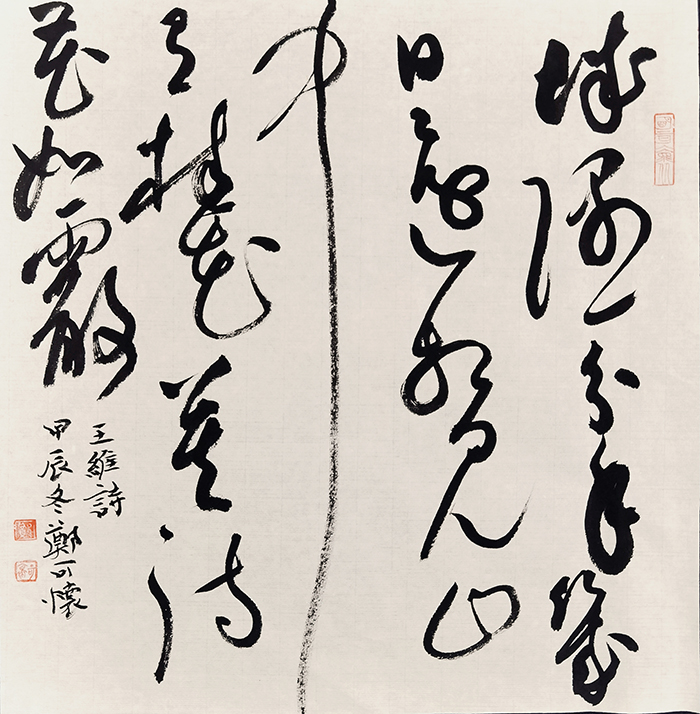 城隅一分手幾
日還相見山
中
有桂花莫待
花如霰
王維詩
甲辰冬鄭可懷